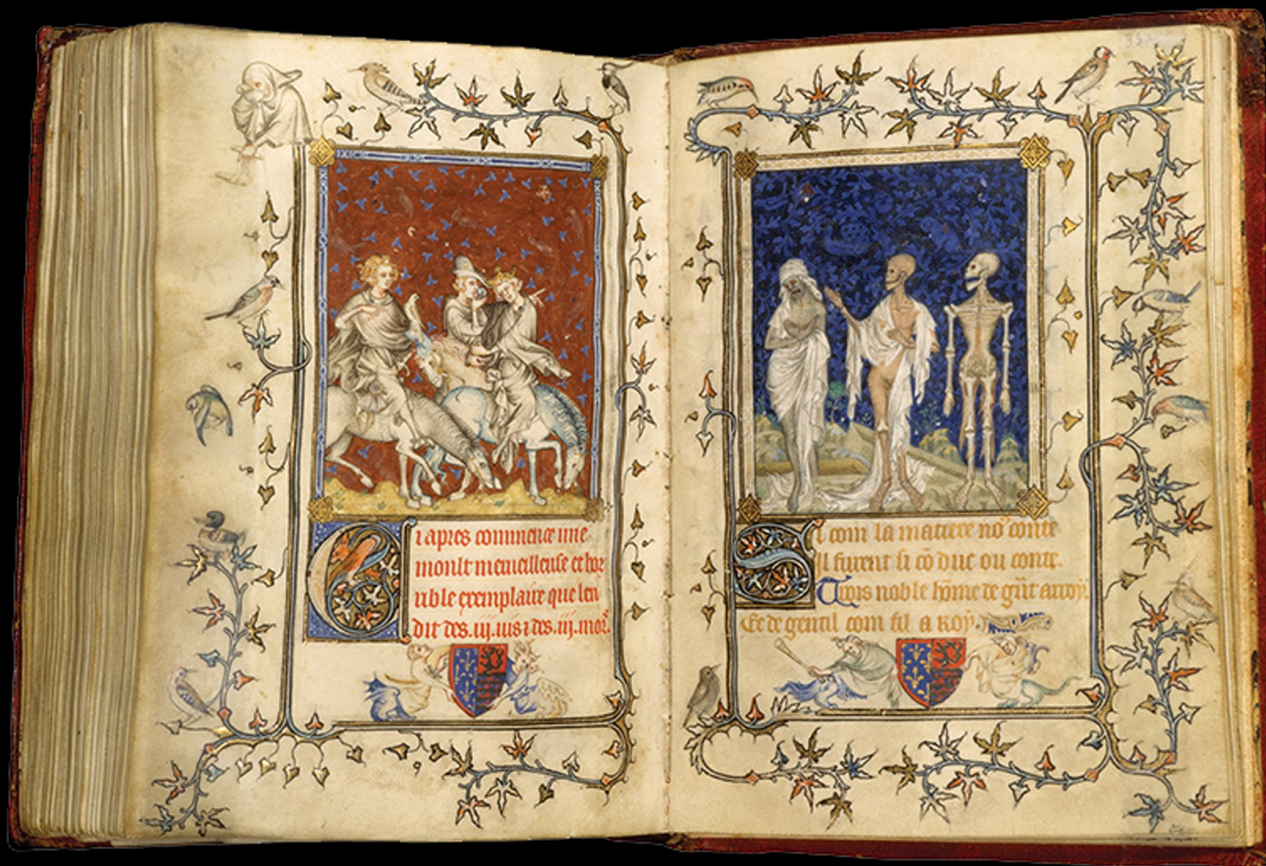 Ci apres commence une
moult merueilleuse et hor
rible exemplaire que len
dit des .iij. uis ⁊ des .iij. mors.
Si com la matiere noꝰ conte
Il furent si cō duc ou conte.
Trois noble hōme de gñt arroy.
Et de gentil com fil a roy.